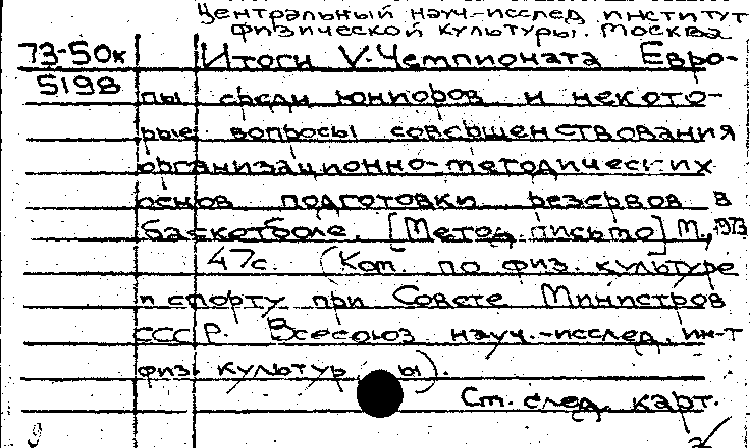 Центральный науч.-исслед институт
физической культуры. Москва
73-50к Итоги V-Чемпионата Евро-
5198 пы среди юниоров и некото-
рые вопросы совершенствования
организационно-методических
основ подготовки резервов в
баскетболе. [Метод. письмо] М., 1973
47с. (Ком. по физ. культуре
и спорту при Совете Министров
СССР. Всесоюз науч.-исслед. ин-т
физ. культур ы).
Ст. след. карт.